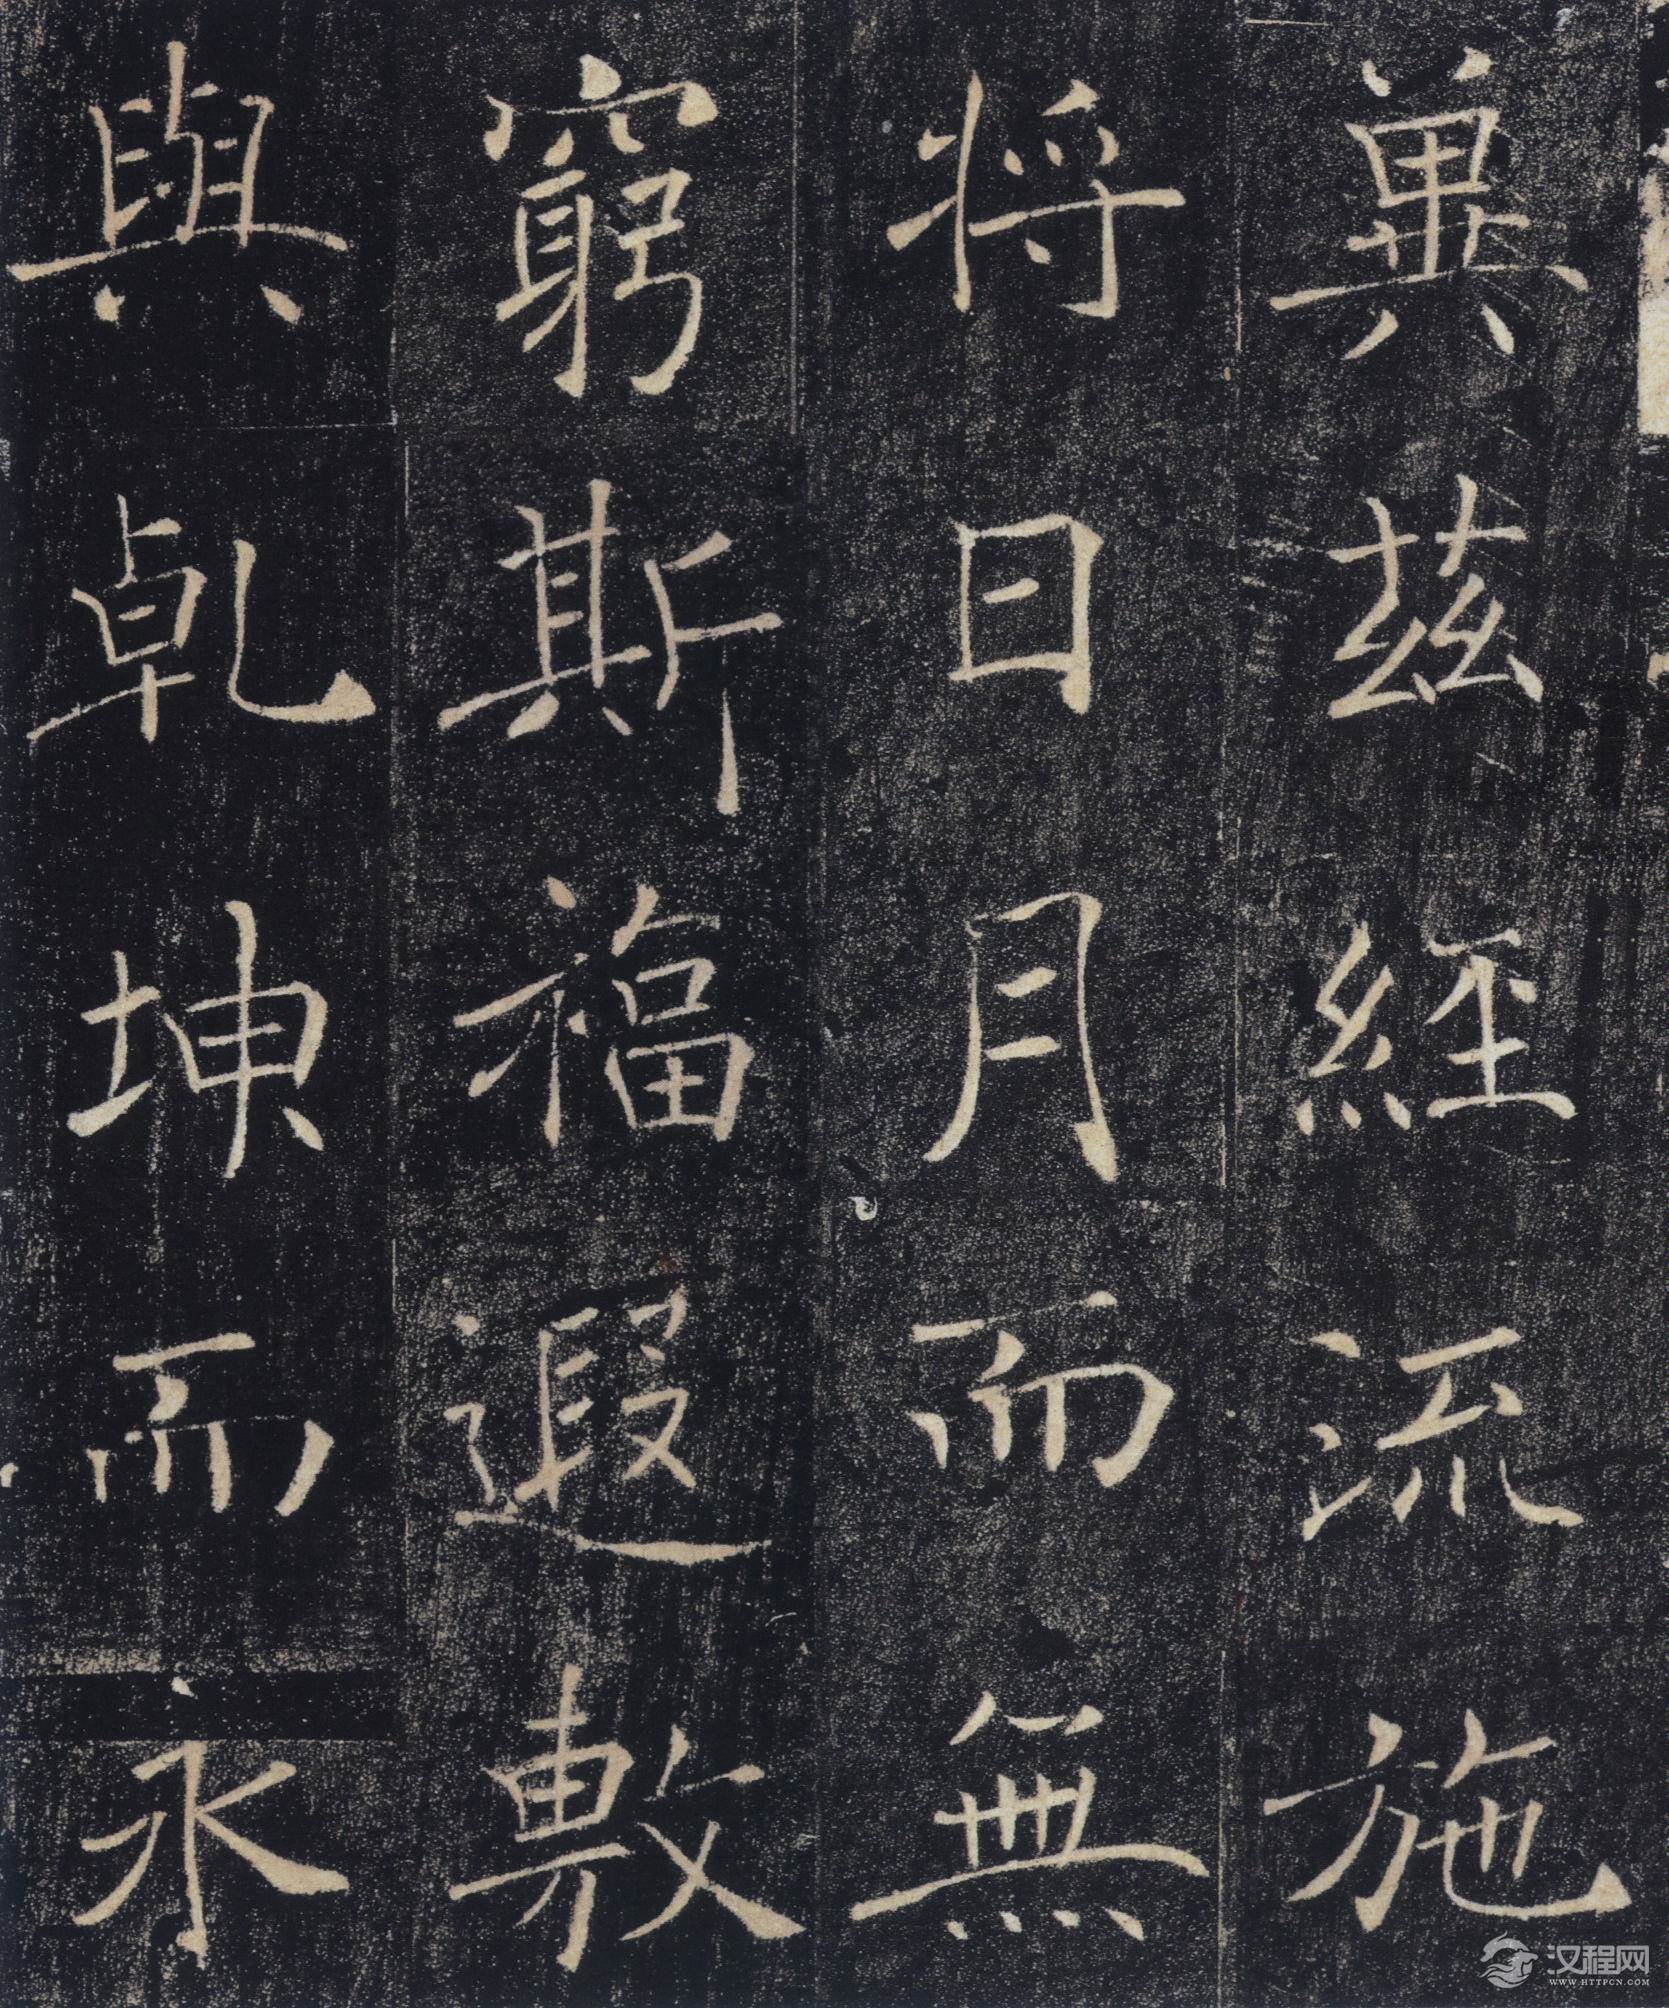 冀茲經流施
将日月而無
窮斯福遐敷
與乹坤而永
汉程网
WWW.HTTPCN.COM